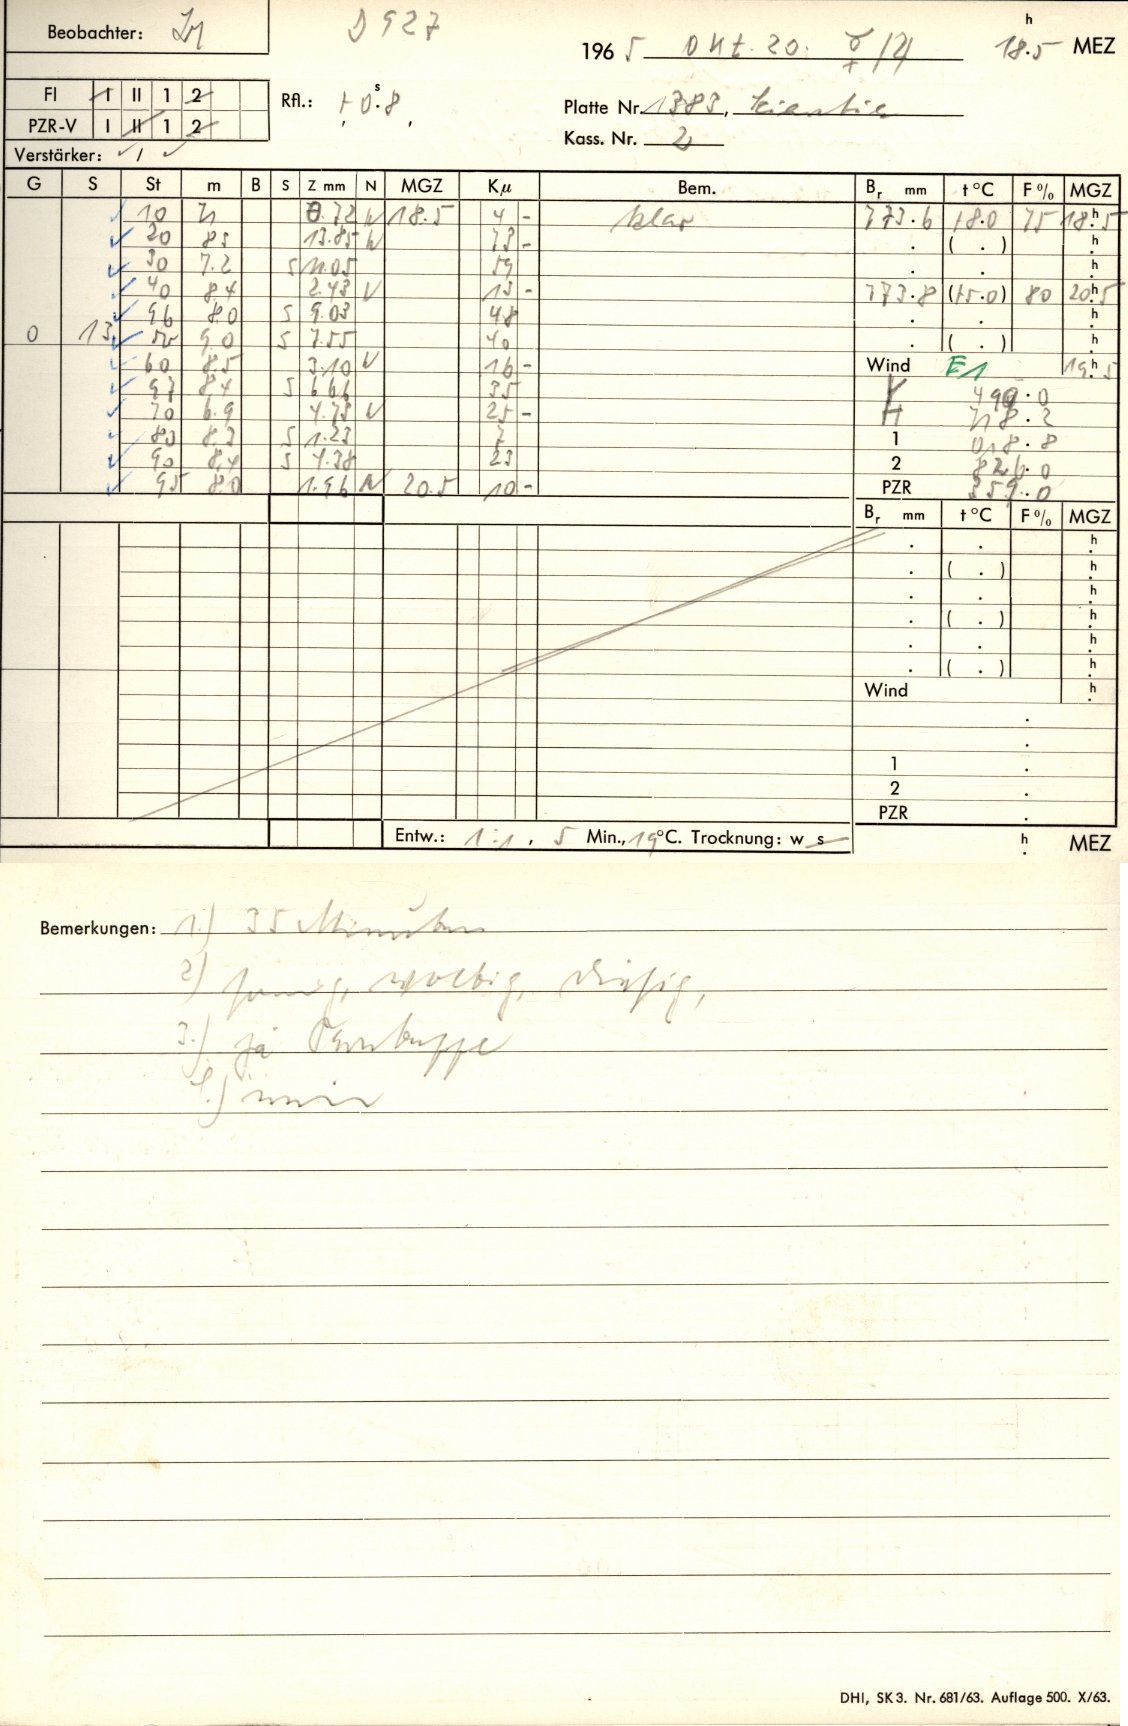 Beobachter:
D 927
1965 Okt. 20. ♀/♃ 18.5 h MEZ
FI I II 1 2
PZR-V I II 1 2
Rfl.: +0.8 s
Platte Nr. 1383,
Kass. Nr. 2
Verstärker: ✓ / ✓
G S St m B S Z mm N MGZ Kμ Bem. Br mm t°C F% MGZ
✓ 10 0.72 N 18.5 4 - klar 773.6 18.0 75 18.5 h
✓ 20 8.5 13.85 N 73 - . ( . ) h
✓ 30 7.2 S 11.05 59 . . h
✓ 40 8.4 2.43 N 13 - 773.8 (15.0) 80 20.5 h
✓ 96 8.0 S 9.03 48 . . h
0 13 ✓ 50 9.0 S 7.55 40 . ( . ) h
✓ 60 8.5 3.10 N 16 - Wind E1 19.5 h
✓ 97 8.4 S 6.66 35 499.0
✓ 70 6.9 4.73 N 25 - H 718.2
✓ 80 8.3 S 1.23 7 1 018.8
✓ 90 8.4 S 4.38 23 2 826.0
✓ 95 8.0 1.96 N 20.5 10 - PZR 359.0
Br mm t°C F% MGZ
. . h
. ( . ) h
. . h
. ( . ) h
. . h
. ( . ) h
Wind h
.
.
1 .
2 .
PZR .
Entw.: 1:1, 5 Min., 19°C. Trocknung: w s h . MEZ
Bemerkungen: 1.) 35 Minuten
2) wolkig, diesig,
3.) ja
4.)
DHI, SK 3. Nr. 681/63. Auflage 500. X/63.